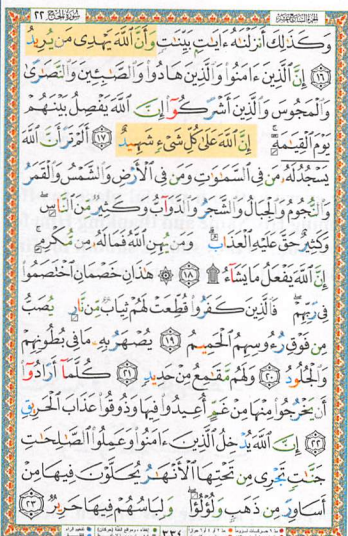 سورة الحج ٢٢
وَكَذَٰلِكَ أَنزَلْنَٰهُ ءَايَٰتٍۭ بَيِّنَٰتٍ وَأَنَّ ٱللَّهَ يَهْدِى مَن يُرِيدُ
﴿١٦﴾ إِنَّ ٱلَّذِينَ ءَامَنُوا۟ وَٱلَّذِينَ هَادُوا۟ وَٱلصَّٰبِـِٔينَ وَٱلنَّصَٰرَىٰ
وَٱلْمَجُوسَ وَٱلَّذِينَ أَشْرَكُوٓا۟ إِنَّ ٱللَّهَ يَفْصِلُ بَيْنَهُمْ
يَوْمَ ٱلْقِيَٰمَةِ ۚ إِنَّ ٱللَّهَ عَلَىٰ كُلِّ شَىْءٍ شَهِيدٌ ﴿١٧﴾ أَلَمْ تَرَ أَنَّ ٱللَّهَ
يَسْجُدُ لَهُۥ مَن فِى ٱلسَّمَٰوَٰتِ وَمَن فِى ٱلْأَرْضِ وَٱلشَّمْسُ وَٱلْقَمَرُ
وَٱلنُّجُومُ وَٱلْجِبَالُ وَٱلشَّجَرُ وَٱلدَّوَآبُّ وَكَثِيرٌ مِّنَ ٱلنَّاسِ ۖ
وَكَثِيرٌ حَقَّ عَلَيْهِ ٱلْعَذَابُ ۗ وَمَن يُهِنِ ٱللَّهُ فَمَا لَهُۥ مِن مُّكْرِمٍ ۚ
إِنَّ ٱللَّهَ يَفْعَلُ مَا يَشَآءُ ۩ ﴿١٨﴾ ۞ هَٰذَانِ خَصْمَانِ ٱخْتَصَمُوا۟
فِى رَبِّهِمْ ۖ فَٱلَّذِينَ كَفَرُوا۟ قُطِّعَتْ لَهُمْ ثِيَابٌ مِّن نَّارٍ يُصَبُّ
مِن فَوْقِ رُءُوسِهِمُ ٱلْحَمِيمُ ﴿١٩﴾ يُصْهَرُ بِهِۦ مَا فِى بُطُونِهِمْ
وَٱلْجُلُودُ ﴿٢٠﴾ وَلَهُم مَّقَٰمِعُ مِنْ حَدِيدٍ ﴿٢١﴾ كُلَّمَآ أَرَادُوٓا۟
أَن يَخْرُجُوا۟ مِنْهَا مِنْ غَمٍّ أُعِيدُوا۟ فِيهَا وَذُوقُوا۟ عَذَابَ ٱلْحَرِيقِ
﴿٢٢﴾ إِنَّ ٱللَّهَ يُدْخِلُ ٱلَّذِينَ ءَامَنُوا۟ وَعَمِلُوا۟ ٱلصَّٰلِحَٰتِ
جَنَّٰتٍ تَجْرِى مِن تَحْتِهَا ٱلْأَنْهَٰرُ يُحَلَّوْنَ فِيهَا مِنْ
أَسَاوِرَ مِن ذَهَبٍ وَلُؤْلُؤًا ۖ وَلِبَاسُهُمْ فِيهَا حَرِيرٌ ﴿٢٣﴾